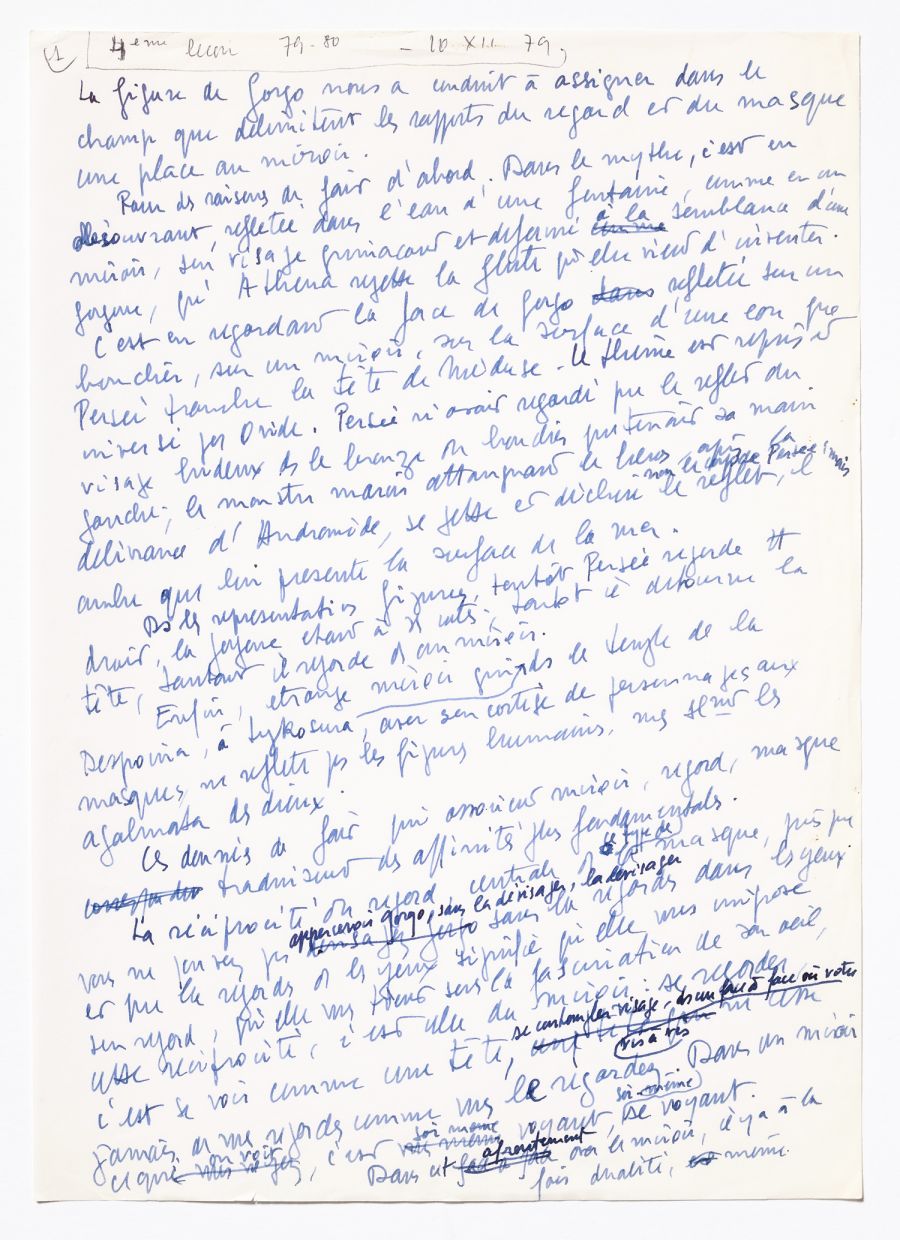 1 4ème leçon 79-80 - 10 XII 79,
La figure de Gorgo nous a conduit à assigner dans le
champ que délimitent les rapports du regard et du masque
une place au miroir.
Pour des raisons de fait d'abord. Dans le mythe, c'est en
découvrant, reflétée dans l'eau d'une fontaine, comme en un
miroir, son visage grimaçant et déformé à la semblance d'une
gorgone, qu'Athéna rejette la flûte qu'elle vient d'inventer.
C'est en regardant la face de Gorgo reflétée sur un
bouclier, sur un miroir, sur la surface d'une eau que
Persée tranche la tête de Méduse. Le thème est repris et
inversé par Ovide. Persée n'avait regardé que le reflet du
visage hideux ds le bronze du bouclier que tenait sa main
gauche; le monstre marin attaquant le héros après la
délivrance d'Andromède, se jette et déchire non le Persée mais le reflet, il
ombre que lui présente la surface de la mer.
Ds les représentations figurées, tantôt Persée regarde tt
droit, la gorgone étant à ses côtés; tantôt il détourne la
tête, tantôt il regarde ds un miroir.
Enfin, étrange miroir ds le temple de la
Despoina, à Lykosura, avec son cortège de personnages aux
masques, ne reflète pas les figures humaines, mais seulmt les
agalmata des dieux.
Ces données de fait qui associent miroir, regard, masque
traduisent des affinités plus fondamentales.
La réciprocité du regard, centrale ds ce type de masque, puisque
vous ne pouvez pas appercevoir Gorgo, sans la dévisager, la dévisager sans la regarder dans les yeux
et que la regarder ds les yeux signifie qu'elle vous impose
son regard, qu'elle vous tient sous la fascination de son oeil,
cette réciprocité, c'est celle du miroir: se regarder,
c'est se voir comme une tête, se contempler visage, ds un face à face ou votre vis à vis
jamais, ne vous regarde comme vous le regardez. Dans un miroir
ce que on voit, c'est soi-même voyant, soi-même se voyant.
Dans cet afrontement avec le miroir, il y a à la
fois dualité, même.